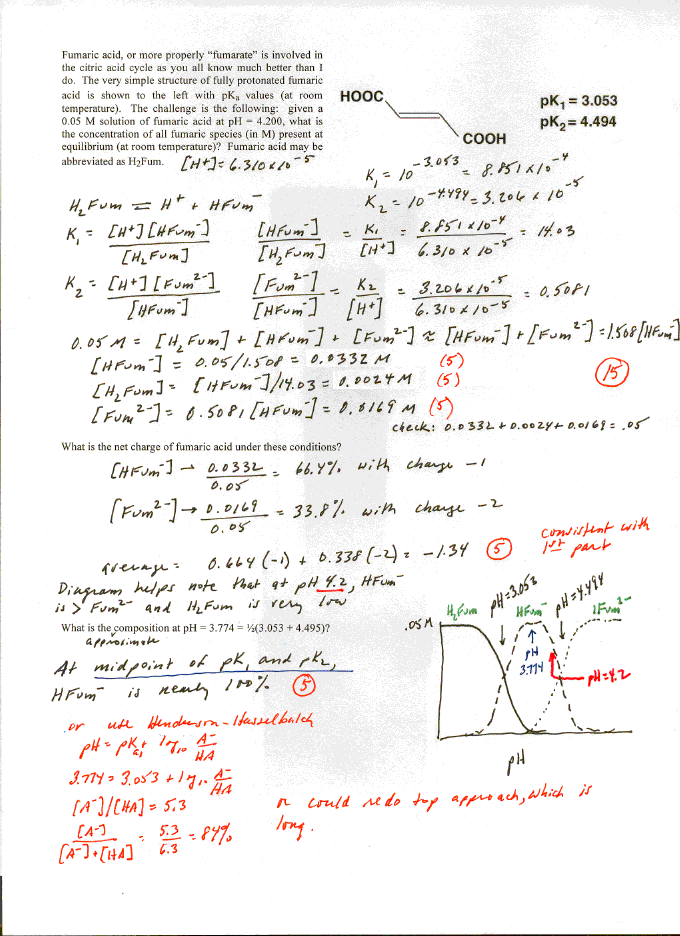 Fumaric acid, or more properly "fumarate" is involved in
the citric acid cycle as you all know much better than I
do. The very simple structure of fully protonated fumaric
acid is shown to the left with pKₐ values (at room
temperature). The challenge is the following: given a
0.05 M solution of fumaric acid at pH = 4.200, what is
the concentration of all fumaric species (in M) present at
equilibrium (at room temperature)? Fumaric acid may be
abbreviated as H₂Fum. [H+] = 6.310 x 10⁻⁵
HOOC
COOH
pK₁ = 3.053
pK₂ = 4.494
K₁ = 10^-3.053 = 8.851 x 10⁻⁴
K₂ = 10^-4.494 = 3.206 x 10⁻⁵
H₂Fum = H⁺ + HFum⁻
K₁ = [H+][HFum⁻] / [H₂Fum] [HFum⁻] / [H₂Fum] = K₁ / [H+] = 8.851 x 10⁻⁴ / 6.310 x 10⁻⁵ = 14.03
K₂ = [H+][Fum²⁻] / [HFum⁻] [Fum²⁻] / [HFum⁻] = K₂ / [H+] = 3.206 x 10⁻⁵ / 6.310 x 10⁻⁵ = 0.5081
0.05 M = [H₂Fum] + [HFum⁻] + [Fum²⁻] ≈ [HFum⁻] + [Fum²⁻] = 1.508 [HFum⁻]
[HFum⁻] = 0.05/1.508 = 0.0332 M (5)
[H₂Fum] = [HFum⁻]/14.03 = 0.0024 M (5)
15
[Fum²⁻] = 0.5081 [HFum⁻] = 0.0169 M (5)
check: 0.0332 + 0.0024 + 0.0169 = .05
What is the net charge of fumaric acid under these conditions?
[HFum⁻] → 0.0332 / 0.05 = 66.4% with charge -1
[Fum²⁻] → 0.0169 / 0.05 = 33.8% with charge -2
average = 0.664 (-1) + 0.338 (-2) = -1.34 5
consistent with
1st part
Diagram helps note that at pH 4.2, HFum⁻
is > Fum²⁻ and H₂Fum is very low
What is the composition at pH = 3.774 = ½(3.053 + 4.495)?
approximate
At midpoint of pK₁ and pK₂,
HFum⁻ is nearly 100% 5
.05M
H₂Fum
pH=3.053
HFum⁻
pH=4.494
Fum²⁻
pH
3.774
pH=4.2
pH
or use Henderson-Hasselbalch
pH = pKₐ₁ + log₁₀ A⁻ / HA
3.774 = 3.053 + log₁₀ A⁻ / HA
[A⁻]/[HA] = 5.3
[A⁻] / [A⁻]+[HA] = 5.3 / 6.3 = 84%
or could redo top approach, which is
long.